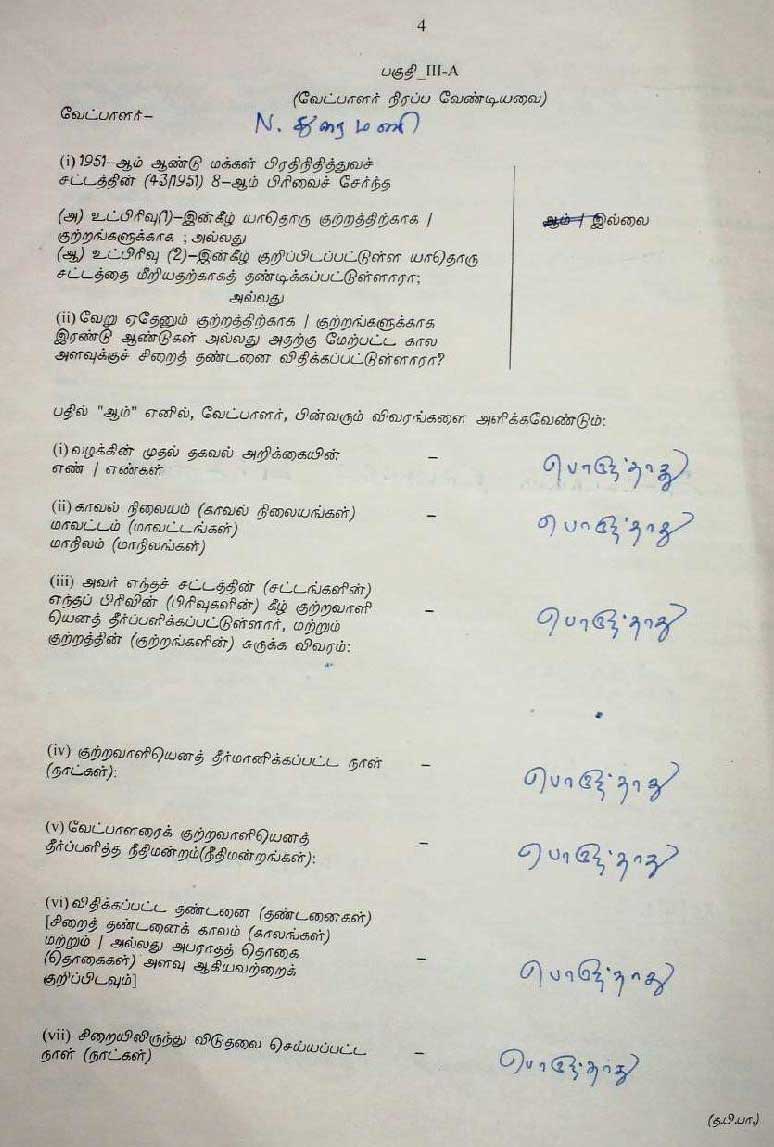 4
பகுதி_III-A
(வேட்பாளர் நிரப்ப வேண்டியவை)
வேட்பாளர்–
N. துரைமணி
(i) 1951-ஆம் ஆண்டு மக்கள் பிரதிநிதித்துவச்
சட்டத்தின் (43/1951) 8-ஆம் பிரிவைச் சேர்ந்த
(அ) உட்பிரிவு(1)-இன்கீழ் யாதொரு குற்றத்திற்காக /
குற்றங்களுக்காக ; அல்லது
ஆம் / இல்லை
(ஆ) உட்பிரிவு (2)-இன்கீழ் குறிப்பிடப்பட்டுள்ள யாதொரு
சட்டத்தை மீறியதற்காகத் தண்டிக்கப்பட்டுள்ளாரா;
அல்லது
(ii) வேறு ஏதேனும் குற்றத்திற்காக / குற்றங்களுக்காக
இரண்டு ஆண்டுகள் அல்லது அதற்கு மேற்பட்ட கால
அளவுக்குச் சிறைத் தண்டனை விதிக்கப்பட்டுள்ளாரா?
பதில் "ஆம்" எனில், வேட்பாளர், பின்வரும் விவரங்களை அளிக்கவேண்டும்:
(i) வழக்கின் முதல் தகவல் அறிக்கையின்
எண் / எண்கள்
– பொருந்தாது
(ii) காவல் நிலையம் (காவல் நிலையங்கள்)
மாவட்டம் (மாவட்டங்கள்)
மாநிலம் (மாநிலங்கள்)
– பொருந்தாது
(iii) அவர் எந்தச் சட்டத்தின் (சட்டங்களின்)
எந்தப் பிரிவின் (பிரிவுகளின்) கீழ் குற்றவாளி
யெனத் தீர்ப்பளிக்கப்பட்டுள்ளார், மற்றும்
குற்றத்தின் (குற்றங்களின்) சுருக்க விவரம்:
– பொருந்தாது
(iv) குற்றவாளியெனத் தீர்மானிக்கப்பட்ட நாள்
(நாட்கள்):
– பொருந்தாது
(v) வேட்பாளரைக் குற்றவாளியெனத்
தீர்ப்பளித்த நீதிமன்றம்(நீதிமன்றங்கள்):
– பொருந்தாது
(vi) விதிக்கப்பட்ட தண்டனை (தண்டனைகள்)
[சிறைத் தண்டனைக் காலம் (காலங்கள்)
மற்றும் / அல்லது அபராதத் தொகை
(தொகைகள்) அளவு ஆகியவற்றைக்
குறிப்பிடவும்]
– பொருந்தாது
(vii) சிறையிலிருந்து விடுதலை செய்யப்பட்ட
நாள் (நாட்கள்)
– பொருந்தாது
(த.பி.பா.)